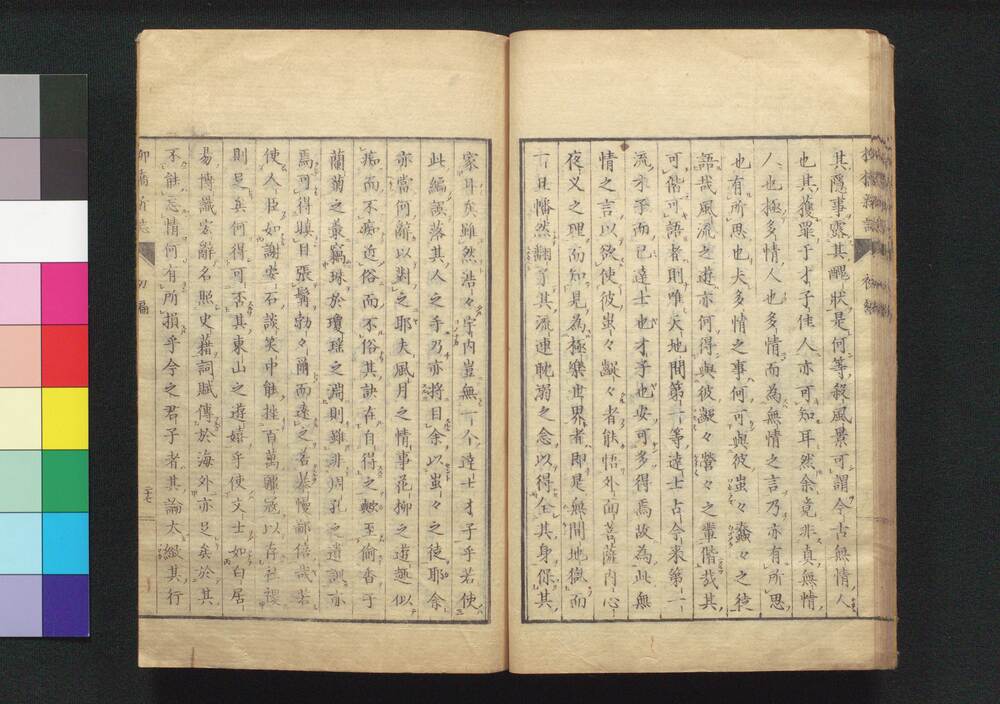 其隱事露其醜狀是何等殺風景可謂今古無情人
也其獲罪于才子佳人亦可知耳然余竟非真無情
人也極多情人也多情而為無情之言乃亦有所思
也有所思也夫多情之事何可與彼蚩々蠢々之徒
語哉風流之遊亦何得與彼齷々營々之輩偕哉其
可偕可語者則唯天地間第一等達士古今來第一
流才子而已達士也才子也安可多得焉故為此無
情之言以欲使彼蚩々齷々者能悟外面菩薩內心
夜叉之理而知見為極樂世界者即是無間地獄而
一旦幡然翻了其流連耽溺之念以得全其身保其
家耳矣雖然浩々宇內豈無一个達士才子乎若使
此編誤落其人之手乃亦將目余以蚩々之徒耶余
亦當何辭以對之耶夫風月之情事花柳之遊趣似
痴而不痴近俗而不俗其訣在自得之歟至偷香于
蘭菊之叢竊珠於瓊瑤之淵則雖非周孔之遺訓亦
焉可得瞋目張鬚勃々爾而遠之若
使人臣如謝安石談笑中能挫百萬羆寇以存社稷
則足矣何得可否其東山之遊嬉乎使文士如白居
易博識宏辭名照史藉詞賦傳於海外亦足矣於其
不能忘情何有所損乎今之君子者其論太緻其行
初編
二十七